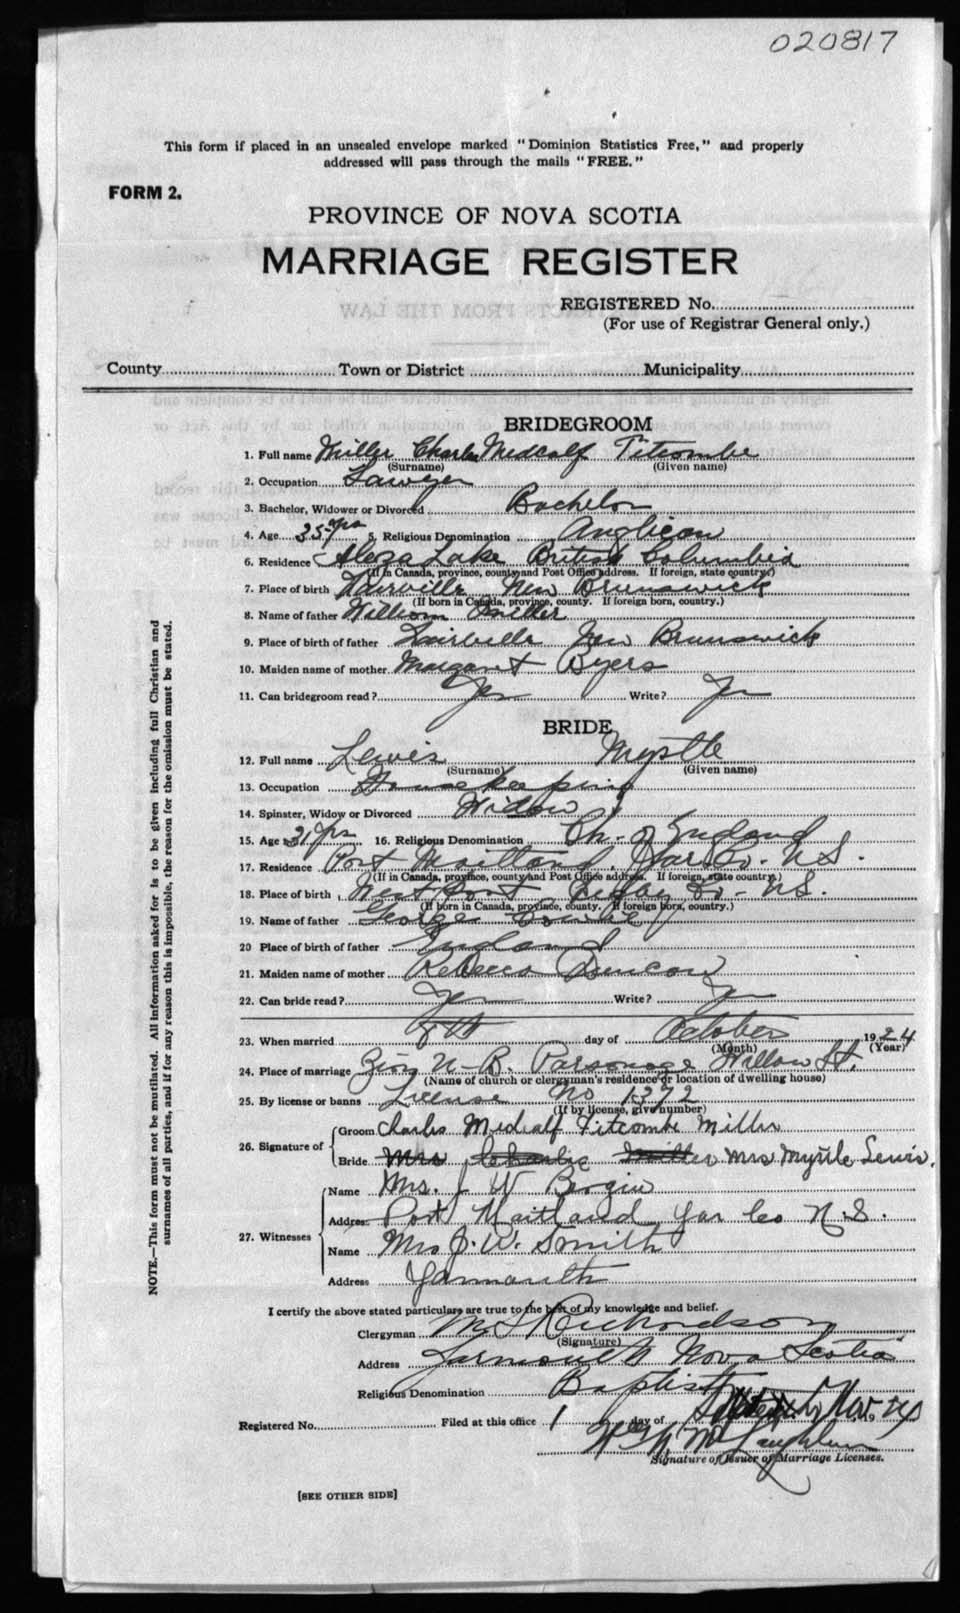 020817
This form if placed in an unsealed envelope marked "Dominion Statistics Free," and properly
addressed will pass through the mails "FREE."
FORM 2.
PROVINCE OF NOVA SCOTIA
MARRIAGE REGISTER
REGISTERED No.
(For use of Registrar General only.)
County Town or District Municipality
BRIDEGROOM
1. Full name Miller Charles Medcalf Titcombe
(Surname) (Given name)
2. Occupation Lawyer
3. Bachelor, Widower or Divorced Bachelor
4. Age 35 yrs 5. Religious Denomination Anglican
6. Residence Aleza Lake British Columbia
(If in Canada, province, county and Post Office address. If foreign, state country.)
7. Place of birth Fairville New Brunswick
(If born in Canada, province, county. If foreign born, country.)
8. Name of father William Miller
9. Place of birth of father Fairville New Brunswick
10. Maiden name of mother Margaret Byers
11. Can bridegroom read? Yes Write? Yes
BRIDE
12. Full name Lewis Myrtle
(Surname) (Given name)
13. Occupation Housekeeping
14. Spinster, Widow or Divorced Widow
15. Age 31 yrs 16. Religious Denomination Ch. of England
17. Residence Port Maitland, Yar. Co. N.S.
(If in Canada, province, county and Post Office address. If foreign, state country.)
18. Place of birth West Port Digby Co. N.S.
(If born in Canada, province, county. If foreign born, country.)
19. Name of father George
20 Place of birth of father England
21. Maiden name of mother Rebecca Duncan
22. Can bride read? Yes Write? Yes
23. When married 8th day of October 1924
(Month) (Year)
24. Place of marriage Zion U-B. Parsonage Willow St.
(Name of church or clergyman's residence or location of dwelling house)
25. By license or banns License No 1372
(If by license, give number)
26. Signature of Groom Charles Medcalf Titcombe Miller
Bride Mrs Charles Miller Mrs Myrtle Lewis.
27. Witnesses Name Mrs. J W Bergin
Address Port Maitland Yar Co N.S.
Name Mrs J. W. Smith
Address Yarmouth
I certify the above stated particulars are true to the best of my knowledge and belief.
Clergyman M S Richardson
(Signature)
Address Yarmouth Nova Scotia
Religious Denomination Baptist
Registered No. Filed at this office 1 day of Nov. 19
McLaughlin
Signature of Issuer of Marriage Licenses.
[SEE OTHER SIDE]
NOTE.—This form must not be mutilated. All information asked for is to be given including full Christian and
surnames of all parties, and if for any reason this is impossible, the reason for the omission must be stated.